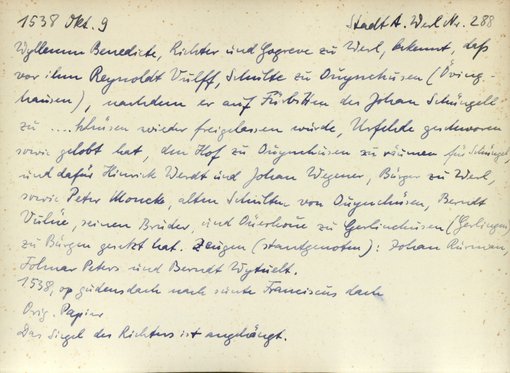 1538 Okt. 9 Stadt A. Werl Nr. 288
Wyllemm Benedicte, Richter und Gogreve zu Werl, bekennt, daß
vor ihm Reynoldt Vulff, Schulte zu Ouynchusen (Öving-
hausen), nachdem er auf Fürbitten des Johan Schüngell
zu ....khusen wieder freigelassen wurde, Urfehde geschworen
sowie gelobt hat, den Hof zu Ouynchusen zu räumen für Schüngel,
und dafür Hinrick Werdt und Johan Wegener, Bürger zu Werl,
sowie Peter Moncke, alten Schulten von Ouynchusen, Berndt
Vulue, seinen Bruder, und zu Gerlinchusen (Gerlingen)
zu Bürgen gesetzt hat. Zeugen (standgenoten): Johan Rürman,
Folmar Peters und Berndt
1538, op gudensdach nach sunte Franciscus dach
Orig. Papier
Das Siegel des Richters ist angehängt.